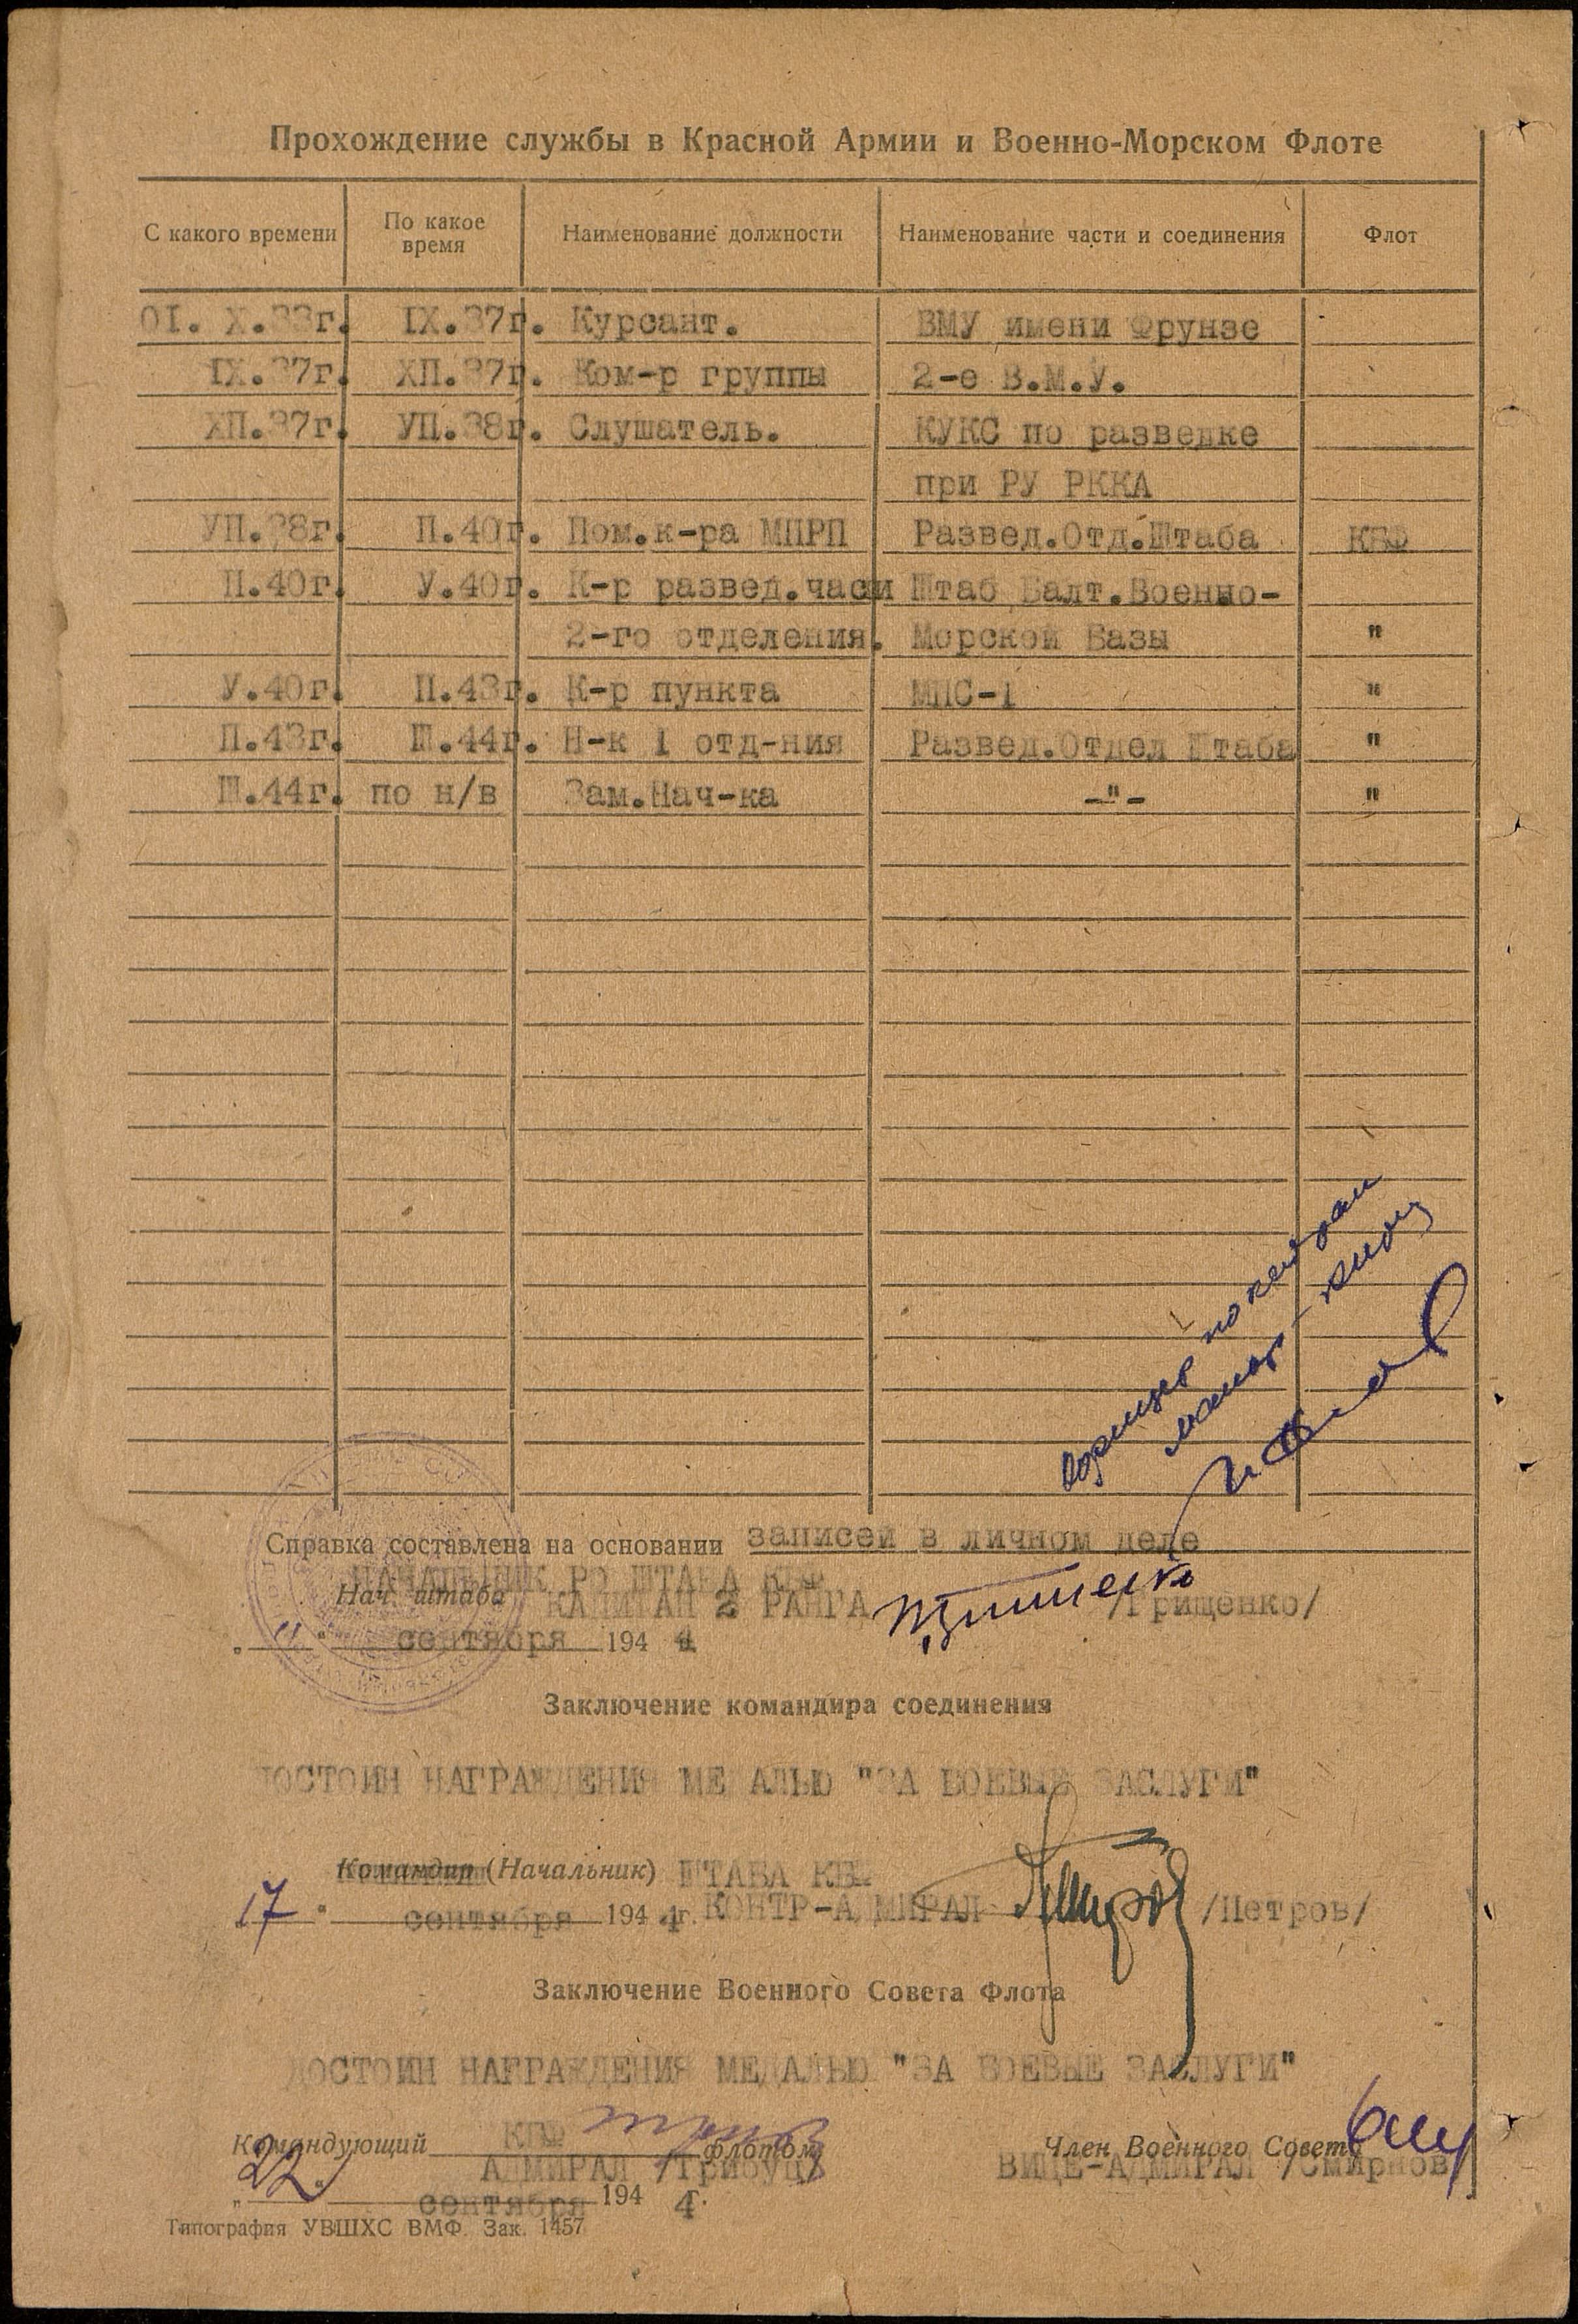 Прохождение службы в Красной Армии и Военно-Морском Флоте
С какого времени По какое время Наименование должности Наименование части и соединения Флот
01. X.33г. IX.37г. Курсант. ВМУ имени Фрунзе
IX.37г. ХП.37г. Ком-р группы 2-е В.М.У.
ХП.37г. УП.38г. Слушатель. КУКС по разведке
при РУ РККА
УП.38г. П.40г. Пом.к-ра МПРП Развед.Отд.Штаба КБФ
П.40г. У.40г. К-р развед.части Штаб Балт.Военно-
2-го отделения. Морской Базы "
У.40г. П.43г. К-р пункта МПС-1 "
П.43г. Ш.44г. Н-к 1 отд-ния Развед.Отдел Штаба "
Ш.44г. по н/в Зам.Нач-ка -"- "
Справка составлена на основании записей в личном деле
НАЧАЛЬНИК РО ШТАБА КБФ
Нач. штаба КАПИТАН 2 РАНГА /Грищенко/
" " сентября 194 4
Заключение командира соединения
ДОСТОИН НАГРАЖДЕНИЯ МЕДАЛЬЮ "ЗА БОЕВЫЕ ЗАСЛУГИ"
Командир (Начальник) ШТАБА КБФ
17 " сентября 194 4г. КОНТР-АДМИРАЛ /Петров/
Заключение Военного Совета Флота
ДОСТОИН НАГРАЖДЕНИЯ МЕДАЛЬЮ "ЗА БОЕВЫЕ ЗАСЛУГИ"
Командующий КБФ флотом Член Военного Совета
АДМИРАЛ /Трибуц/ ВИЦЕ-АДМИРАЛ /Смирнов/
"22" сентября 194 4 г.
Типография УВШХС ВМФ. Зак. 1457